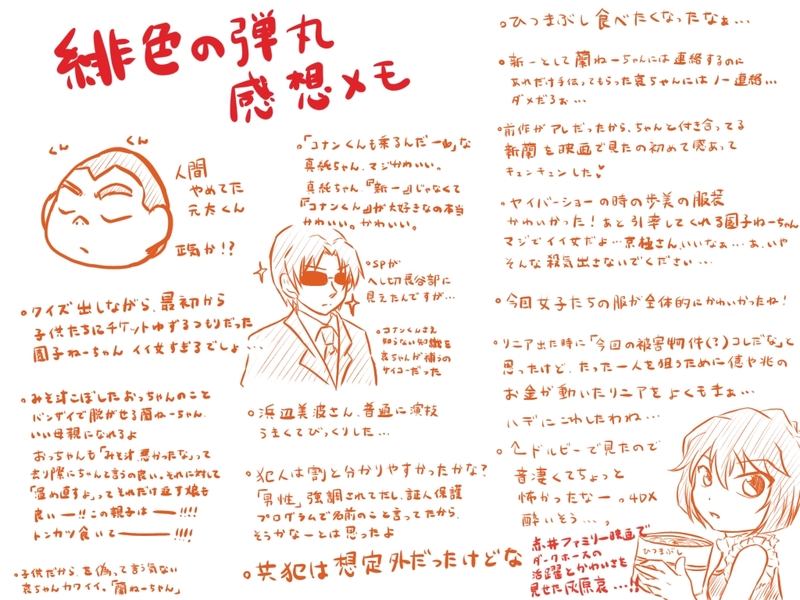 緋色の弾丸
感想メモ
くん
くん
人間
やめてた
元太くん
正気か!?
◦クイズ出しながら、最初から
子供たちにチケットゆずるつもりだった
園子ねーちゃん イイ女すぎるでしょ…
◦みそ汁こぼしたおっちゃんのこと
バンザイで脱がせる蘭ねーちゃん、
いい母親になれるよ
おっちゃんも「みそ汁、悪かったな」って
去り際にちゃんと言うの良い。それに対して
「温め直すよ」ってそれだけ返す娘も
良いー!!この親子はー!!!!
トンカツ食いてー!!!!
◦子供だから、を偽って言う気ない
哀ちゃんカワイイ。「蘭ねーちゃん」
◦「コナンくんも乗るんだー」な
真純ちゃん、マジかわいい。
真純ちゃん、『新一』じゃなくて
『コナンくん』が大好きなの本当
かわいい。かわいい。
◦SPが
へし切長谷部に
見えたんですが…
◦コナンくんさえ
知らない知識を
哀ちゃんが補うの
サイコーだった
◦浜辺美波さん、普通に演技
うまくてびっくりした…
◦犯人は割と分かりやすかったかな?
「男性」強調されてたし、証人保護
プログラムで名前のこと言ってたから、
そうかなーとは思ったよ
◦共犯は想定外だったけどな
◦ひつまぶし食べたくなったなぁ…
◦新一として蘭ねーちゃんには連絡するのに
あれだけ手伝ってもらった哀ちゃんにはノー連絡…
ダメだろぉ…
◦前作がアレだったから、ちゃんと付き合ってる
新蘭を映画で見たの初めて感あって
キュンキュンした♥
◦ヤイバーショーの時の歩美の服装
かわいかった!あと引率してくれる園子ねーちゃん
マジでイイ女だよ…京極さん、いいなぁ…あ、いや
そんな殺気出さないでください…
◦今回女子たちの服が全体的にかわいかったね!
◦リニア出た時に「今回の被害物件(?)コレだな」と
思ったけど、たった一人を狙うために億や兆の
お金が動いたリニアをよくもまぁ…
ハデにこわしたわね…
◦↑ドルビーで見たので
音凄くてちょっと
怖かったなーっ4DX
酔いそう…。
赤井ファミリー映画で
ダークホースの
活躍とかわいさを
見せた灰原哀…!!
ひつまぶし